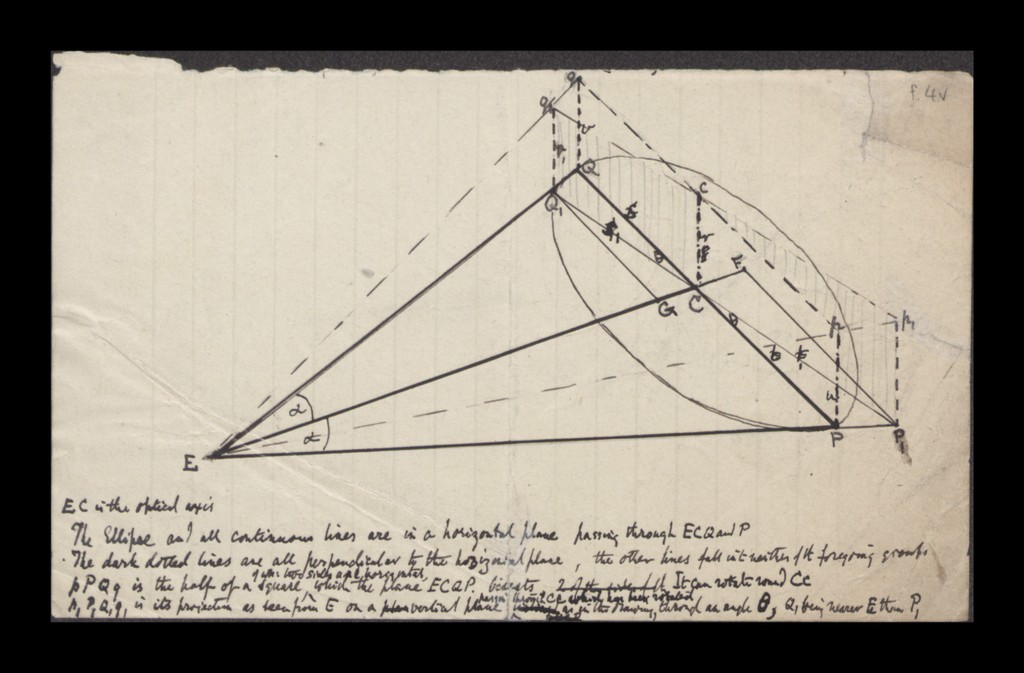 f. 4v
q
q1
v
v1
Q
Q1
S
S1
θ
C
r
F
G
C
θ
p
p1
t
t1
u
α
α
E
P
P1
EC is the optical axis
The Ellipse and all continuous lines are in a horizontal plane passing through ECQ and P
The dark dotted lines are all perpendicular to the horizontal plane, the other lines fall into neither of the foregoing groups
if its two sides are horizontal,
pPQq is the half of a square, which the plane ECQP. bisects It can rotate round Cc
passing through CP which has been rotated
p1P1Q1q1 is its projection as seen from E on a vertical plane as in the drawing, through an angle θ, Q1 being nearer E than P1